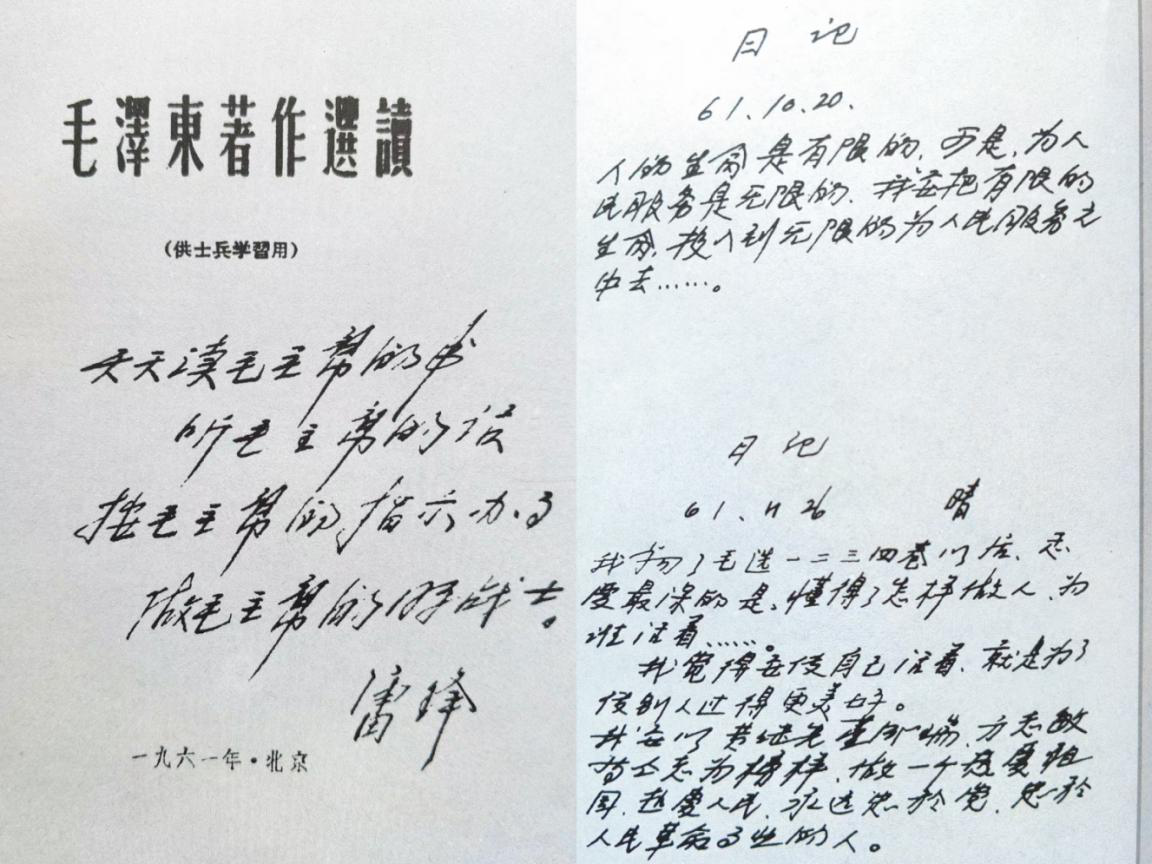 毛澤東著作選讀
(供士兵学習用)
天天读毛主席的书
听毛主席的话
按毛主席的指示办事
做毛主席的好战士。
雷锋
一九六一年·北京
日记
61.10.20.
人的生命是有限的,可是,为人
民服务是无限的,我要把有限的
生命,投入到无限的为人民服务之
中去……。
日记
61.11 26 晴
我学习了毛选一二三四卷以后,感
受最深的是,懂得了怎样做人,为
谁活着……。
我觉得要使自己活着,就是为了
使别人过得更美好。
我要以黄继光董存瑞,方志敏
等同志为榜样,做一个热爱祖
国,热爱人民,永远忠於党,忠於
人民革命事业的人。